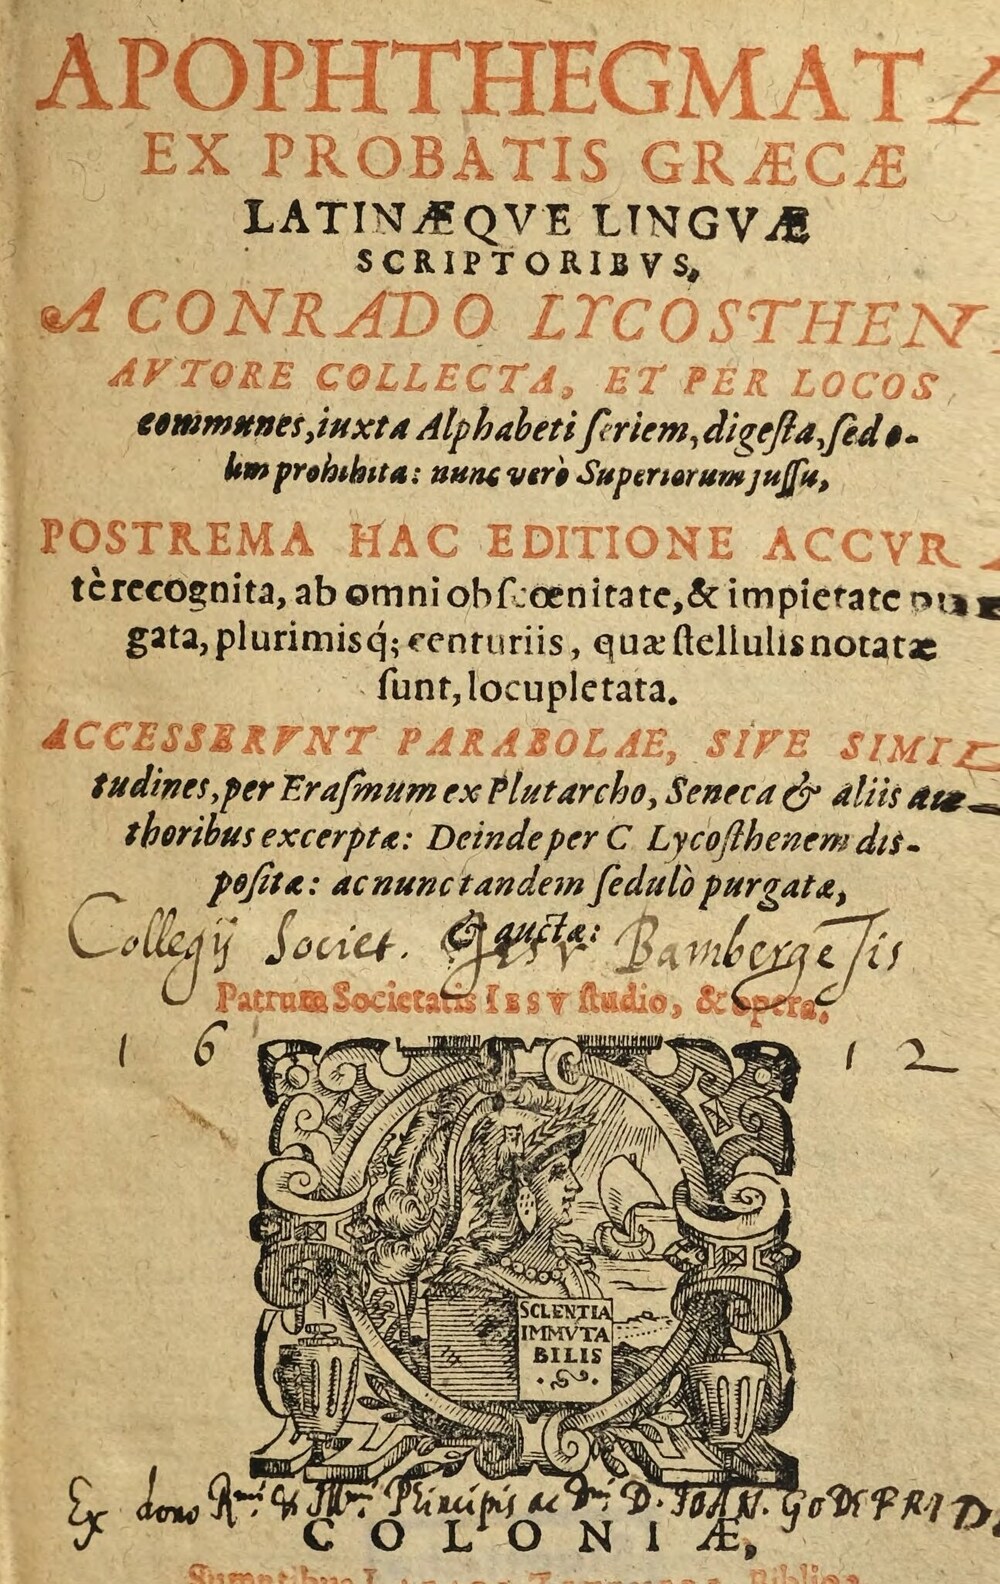 APOPHTHEGMATA
EX PROBATIS GRÆCÆ
LATINÆQVE LINGVÆ
SCRIPTORIBVS,
A CONRADO LYCOSTHEN
AVTORE COLLECTA, ET PER LOCOS
communes, iuxta Alphabeti ſeriem, digeſta, ſed o-
lim prohibita: nunc verò Superiorum juſſu,
POSTREMA HAC EDITIONE ACCVRA
tè recognita, ab omni obſcœnitate, & impietate pur
gata, plurimisq́; centuriis, quæ ſtellulis notatæ
ſunt, locupletata.
ACCESSERVNT PARABOLAE, SIVE SIMIL
tudines, per Eraſmum ex Plutarcho, Seneca & aliis au-
thoribus excerptæ: Deinde per C Lycoſthenem dis-
poſitæ: ac nunc tandem ſedulò purgatæ,
& auctæ:
Collegij Societ. Jesv Bambergeſis
Patrum Societatis IESV ſtudio, & opera.
1 6 1 2
SCLENTIA
IMMVTA
BILIS
Ex dono R.mi & Ill.mi Principis ac Dni D. IOAN. GODEFRIDI
COLONIÆ,
Sumptibus